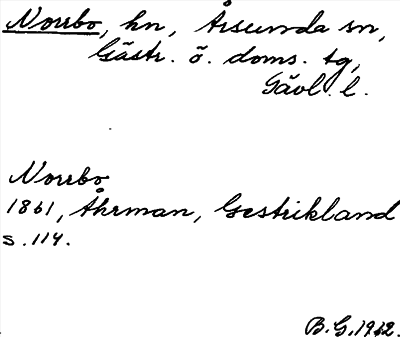 Norrbo, hn, Årsunda sn,
Gästr. ö. doms. tg,
Gävl. l.
Norrbo
1861, Åhrman, Gestrikland
s. 114.
B.G. 1962.